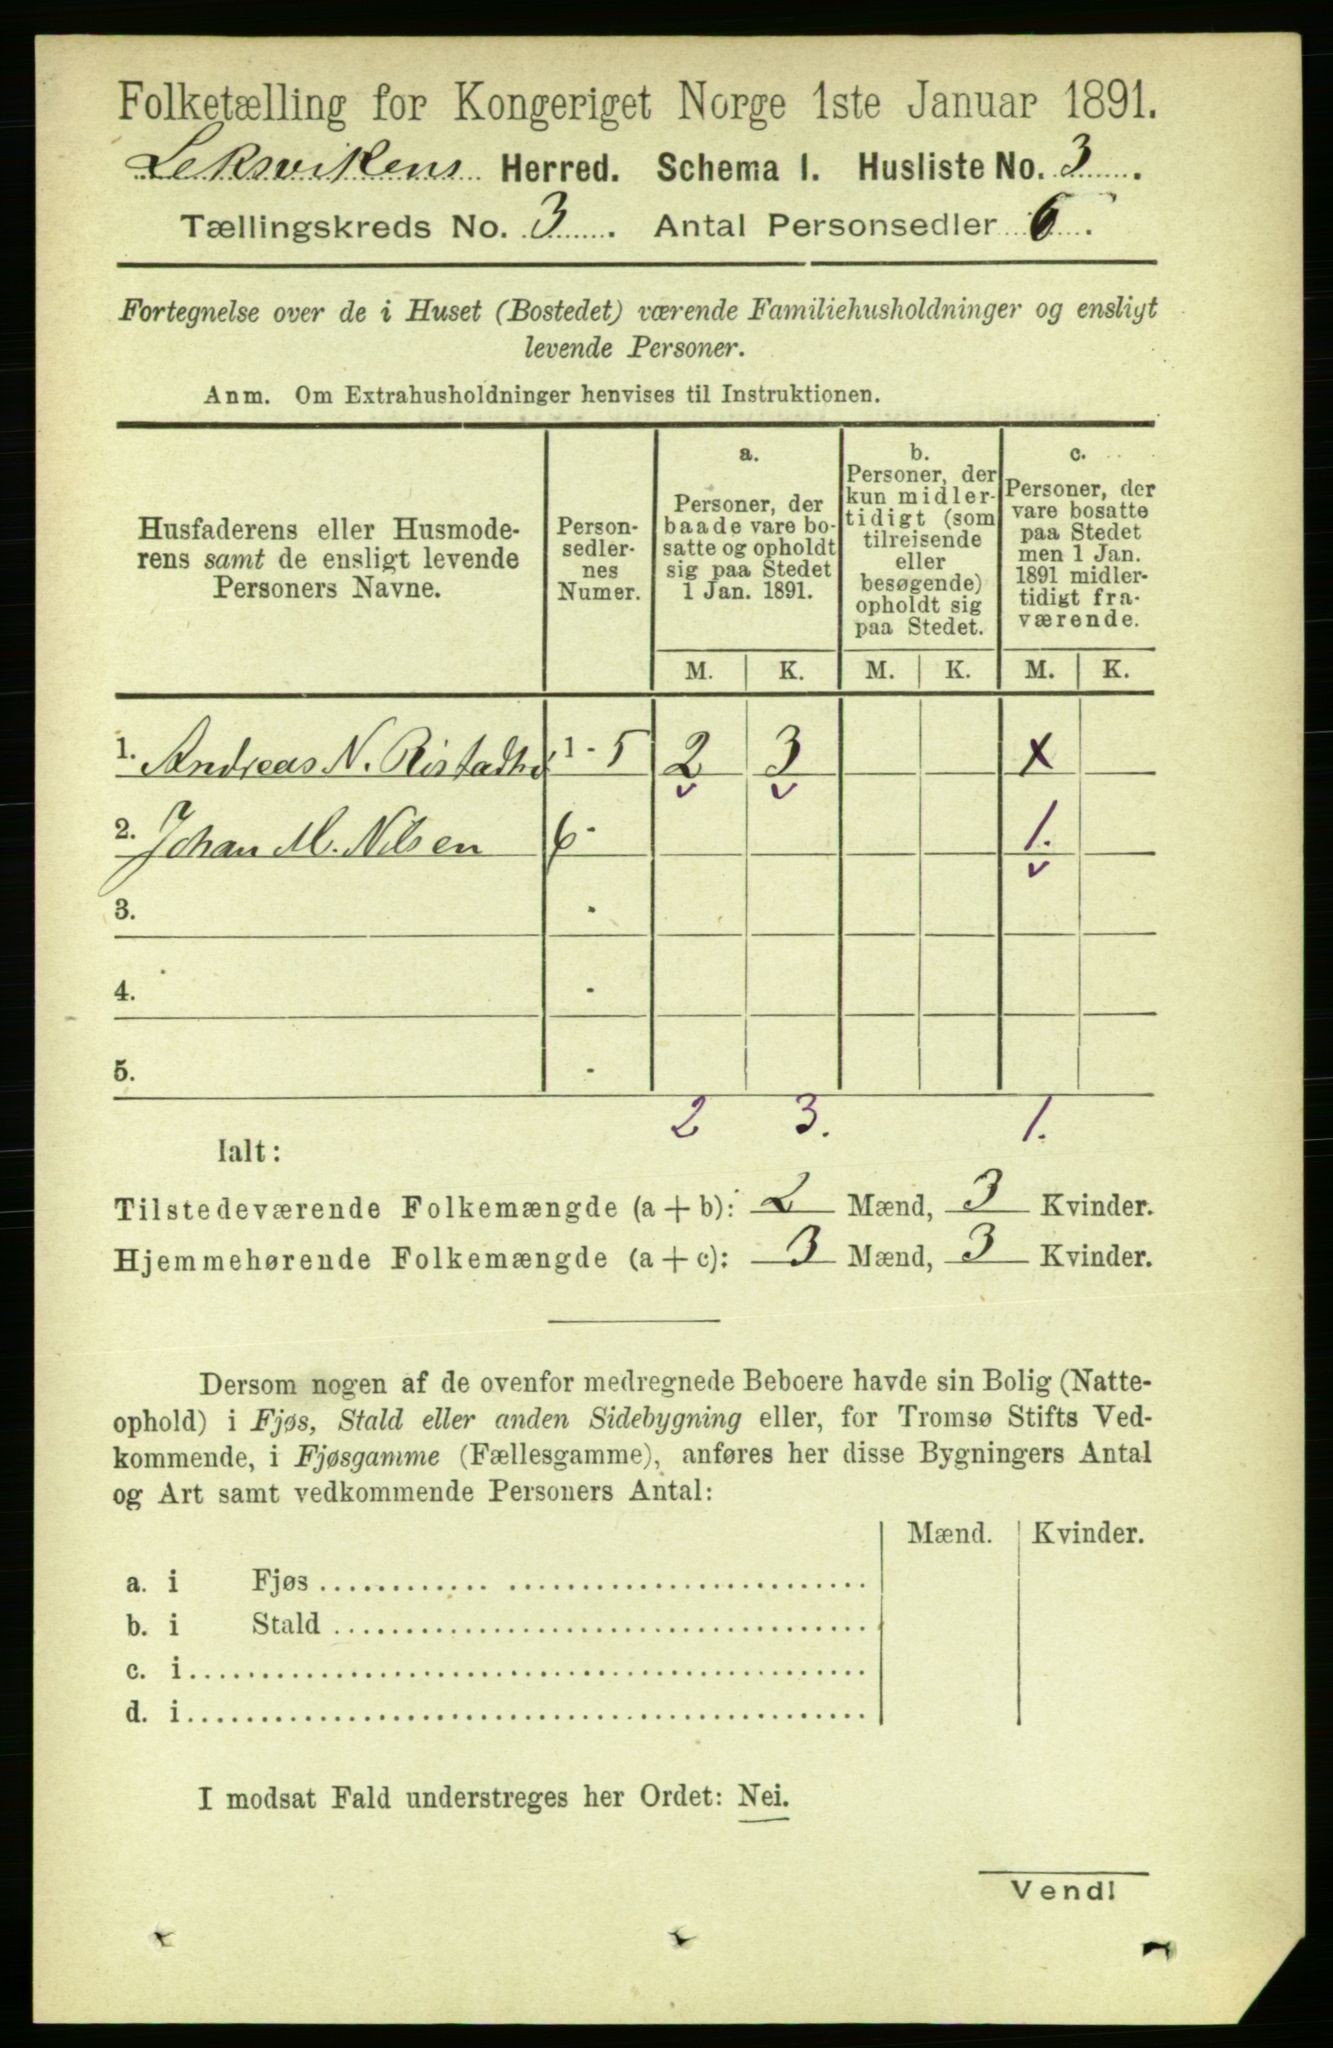 Folketælling for Kongeriget Norge 1ste Januar 1891.
Leksvikens Herred. Schema I. Husliste No. 3.
Tællingskreds No. 3. Antal Personsedler 6.
Fortegnelse over de i Huset (Bostedet) værende Familiehusholdninger og ensligt
levende Personer.
Anm. Om Extrahusholdninger henvises til Instruktionen.
Husfaderens eller Husmode-
rens samt de ensligt levende
Personers Navne.
Person-
sedler-
nes
Numer.
a.
Personer, der
baade vare bo-
satte og opholdt
sig paa Stedet
1 Jan. 1891.
b.
Personer, der
kun midler-
tidigt (som
tilreisende
eller
besøgende)
opholdt sig
paa Stedet.
c.
Personer, der
vare bosatte
paa Stedet
men 1 Jan.
1891 midler-
tidigt fra-
værende.
M. K. M. K. M. K.
1. Andreas N. 1 - 5 2 3 x
2. Johan M. Nilsen 6 - 1.
3. -
4. -
5. -
2 3. 1.
Ialt:
Tilstedeværende Folkemængde (a + b): 2 Mænd, 3 Kvinder.
Hjemmehørende Folkemængde (a + c): 3 Mænd, 3 Kvinder.
Dersom nogen af de ovenfor medregnede Beboere havde sin Bolig (Natte-
ophold) i Fjøs, Stald eller anden Sidebygning eller, for Tromsø Stifts Ved-
kommende, i Fjøsgamme (Fællesgamme), anføres her disse Bygningers Antal
og Art samt vedkommende Personers Antal:
Mænd. Kvinder.
a. i Fjøs
b. i Stald
c. i
d. i
I modsat Fald understreges her Ordet: Nei.
Vend!